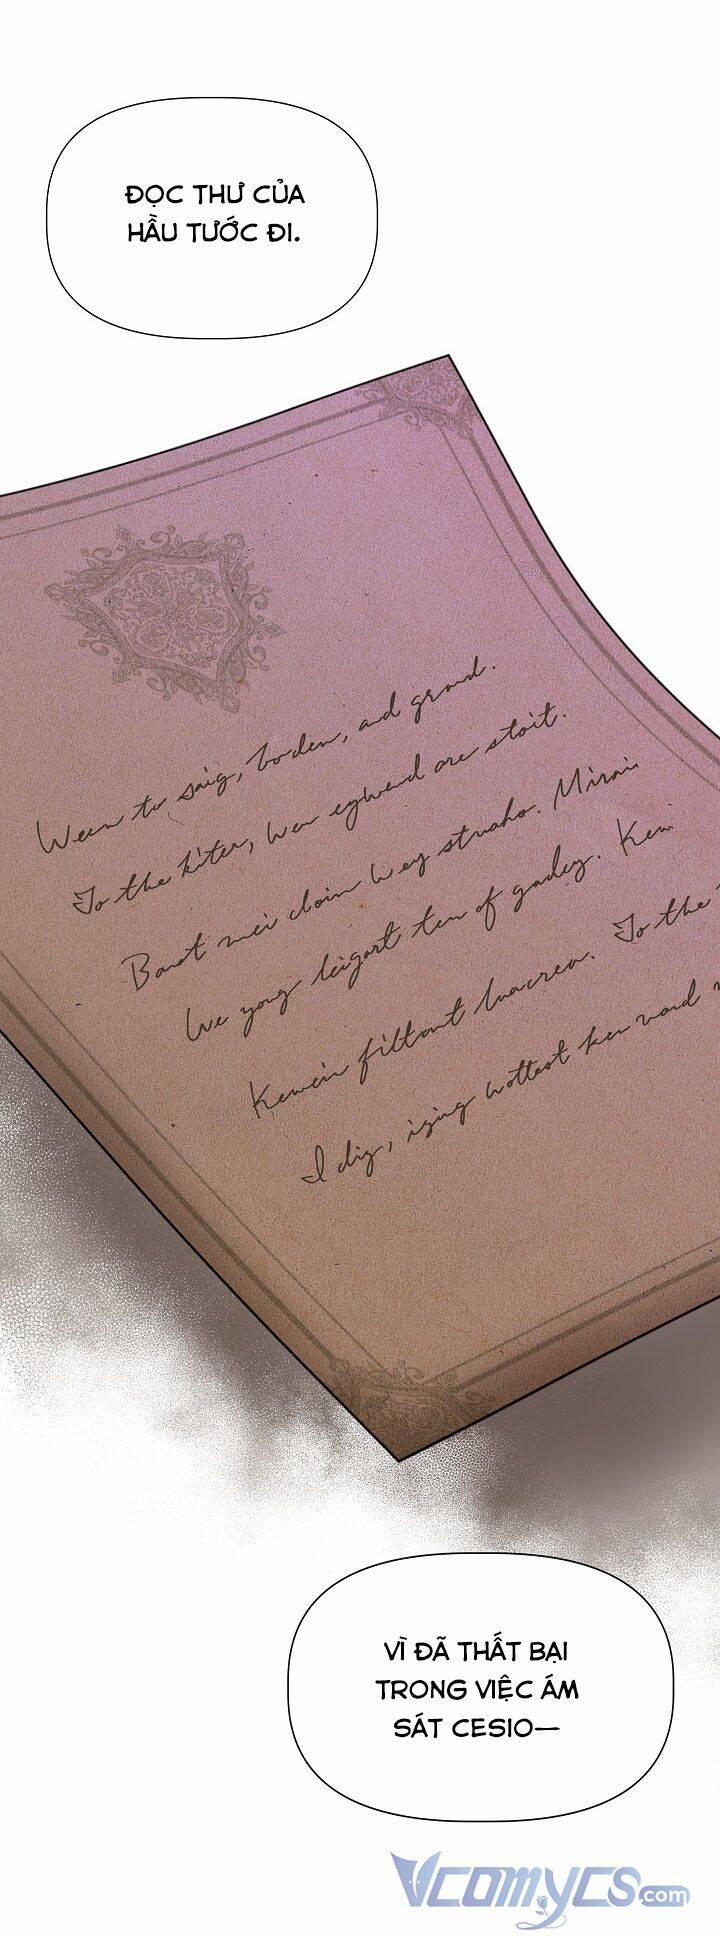 ĐỌC THƯ CỦA
HẦU TƯỚC ĐI.
Ween to saig, boden, and grond.
To the kiter, wen egwend are stoit.
Banot mei doin wey strusho. Mirai
We yong leigort ten of gadey. Kemi
Kewein filtont luacrea. To the
I diz, izing wottest ken vord
VÌ ĐÃ THẤT BẠI
TRONG VIỆC ÁM
SÁT CESIO—
VCOMYCS.com